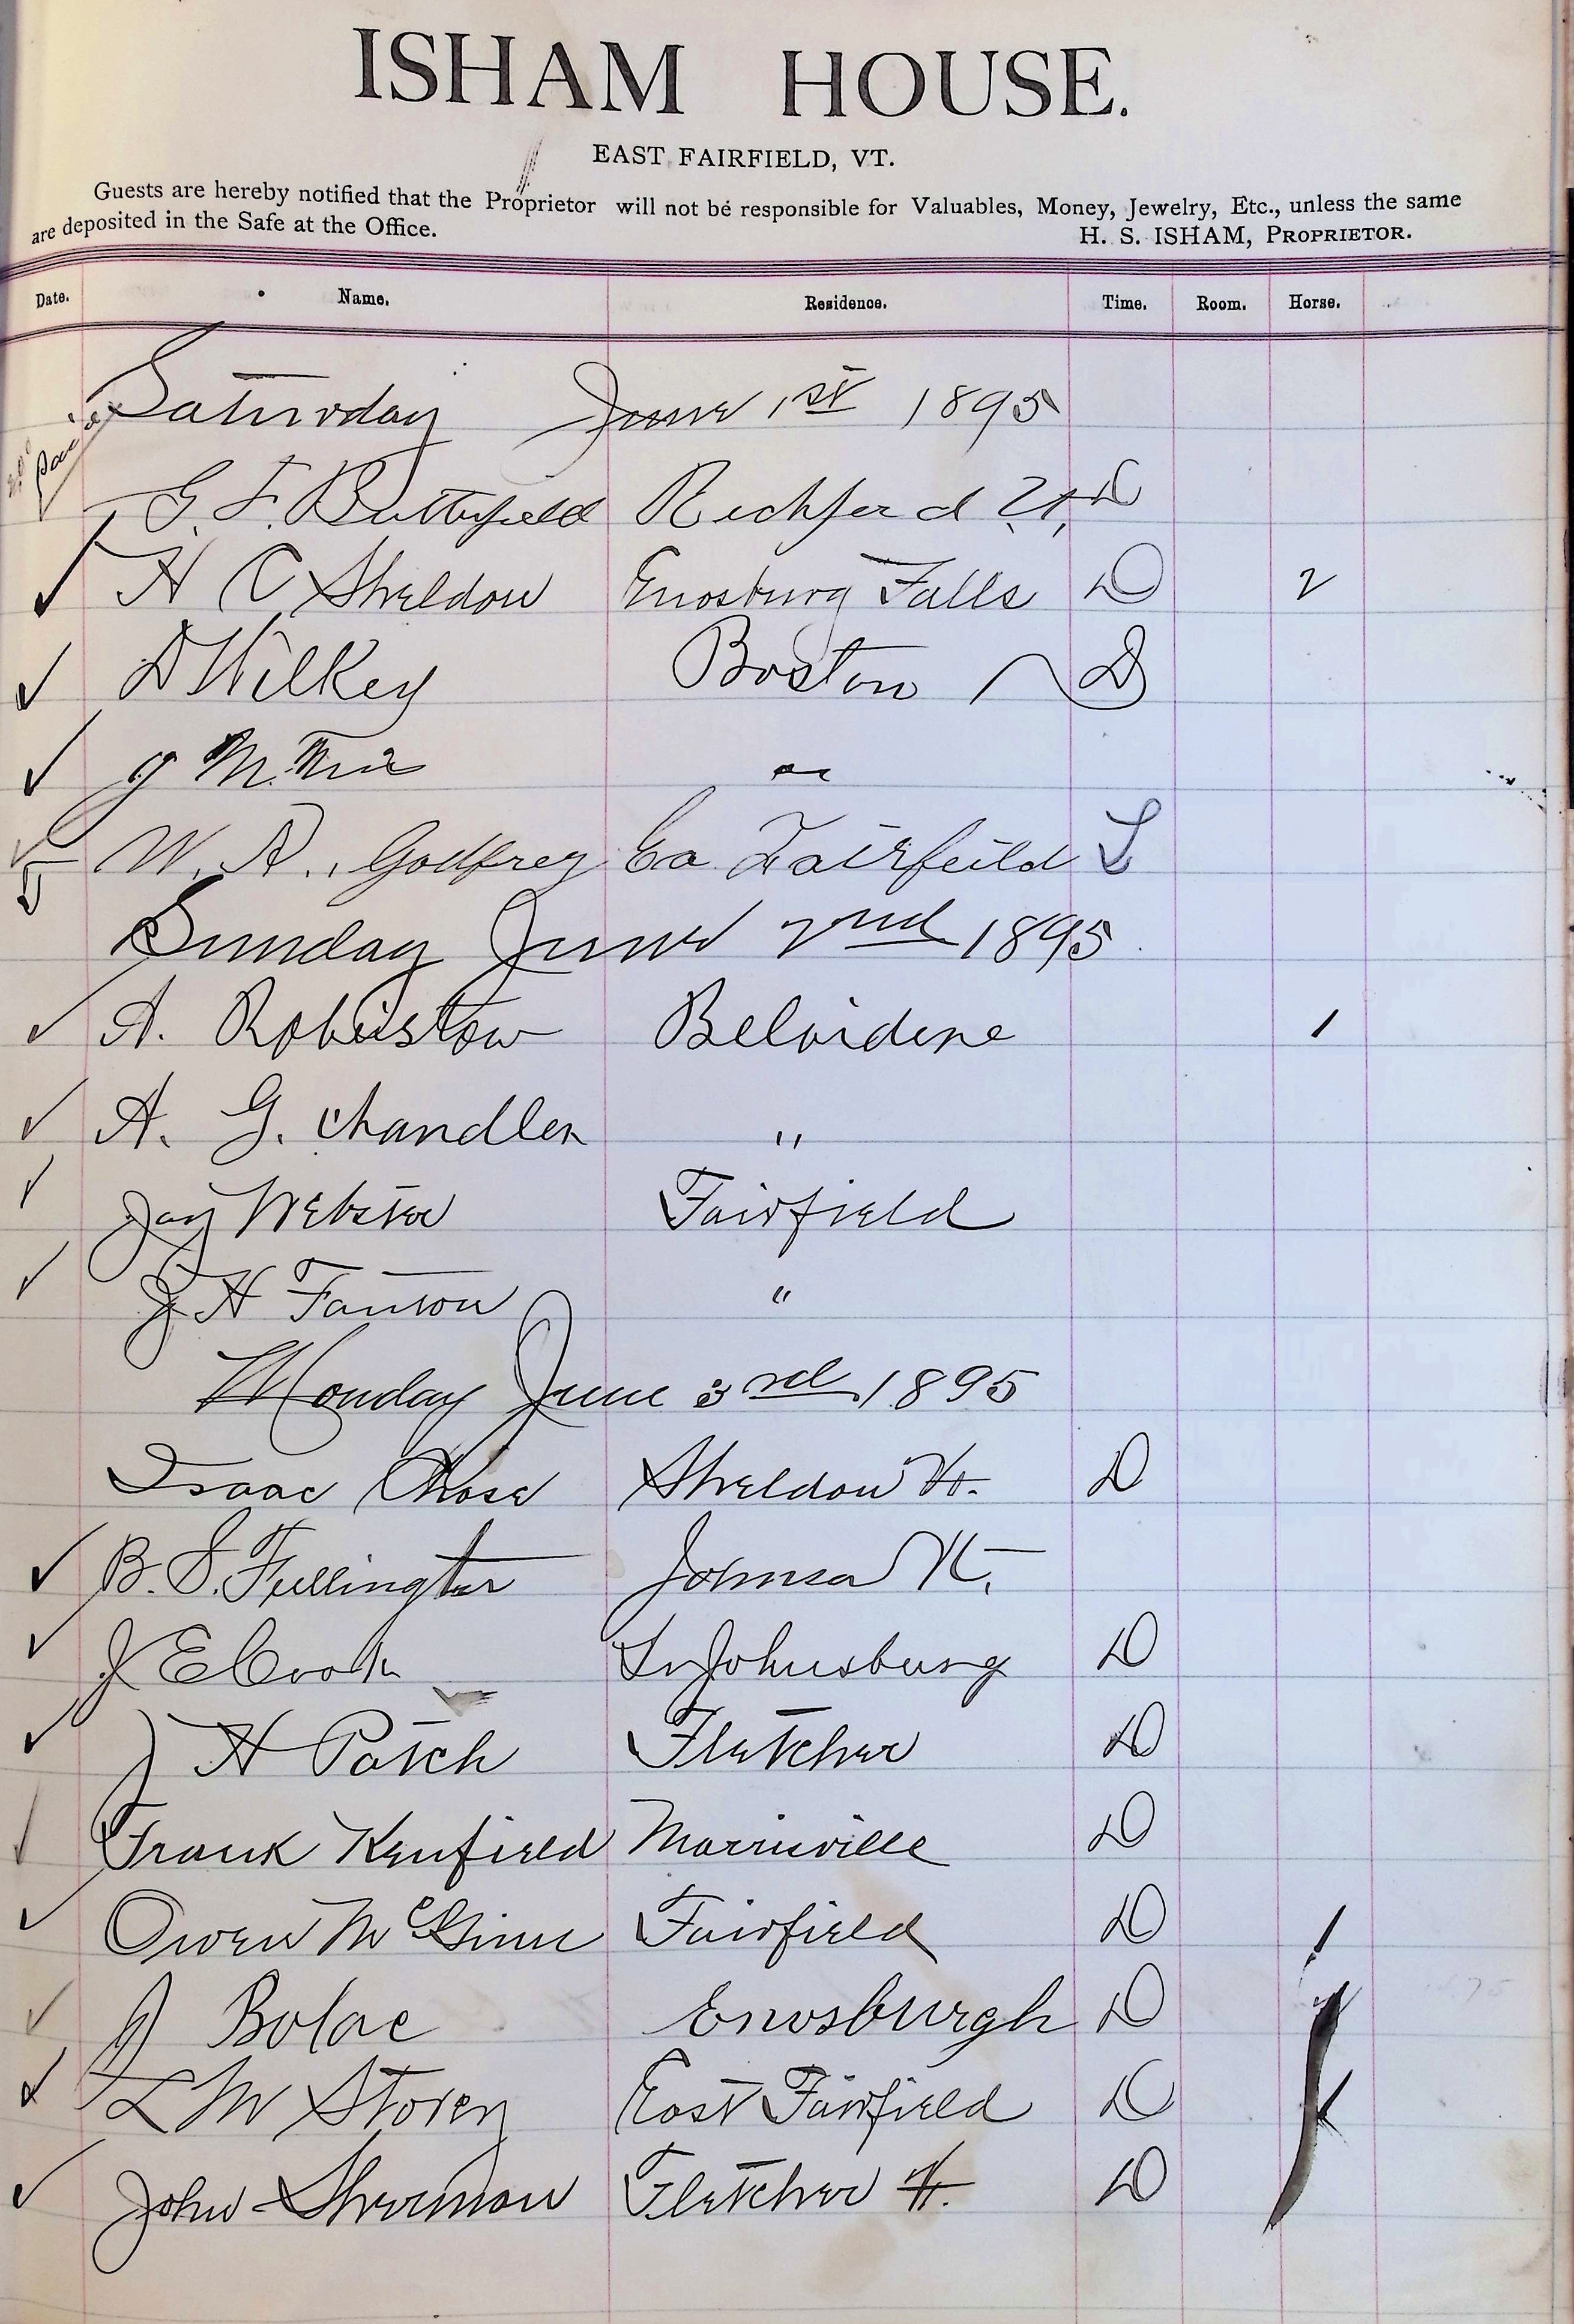 ISHAM HOUSE.
EAST FAIRFIELD, VT.
Guests are hereby notified that the Proprietor will not be responsible for Valuables, Money, Jewelry, Etc., unless the same
are deposited in the Safe at the Office.
H. S. ISHAM, PROPRIETOR.
Date. Name. Residence. Time. Room. Horse.
Saturday June 1st 1895
paid
G. F. Butterfield Richford Vt, D
H C Sheldon Enosburg Falls D 2
D Wilkey Boston D
W. A. Godfrey Ea Fairfeild L
Sunday June 2nd 1895
A. Robistow Belvidere 1
A. G. Chandler "
Jay Webster Fairfield
J H Fanton "
Monday June 3rd 1895
Isaac Chase Sheldon Vt. D
B. S. Fullington Johnson Vt.
J E Cook St Johnsburg D
J H Patch Fletcher D
Frank Kenfield Morrisville D
Owen McGinn Fairfield D 1
J Bolac Enosburgh D
L M Storey East Fairfield D
John Sherman Fletcher Vt. D